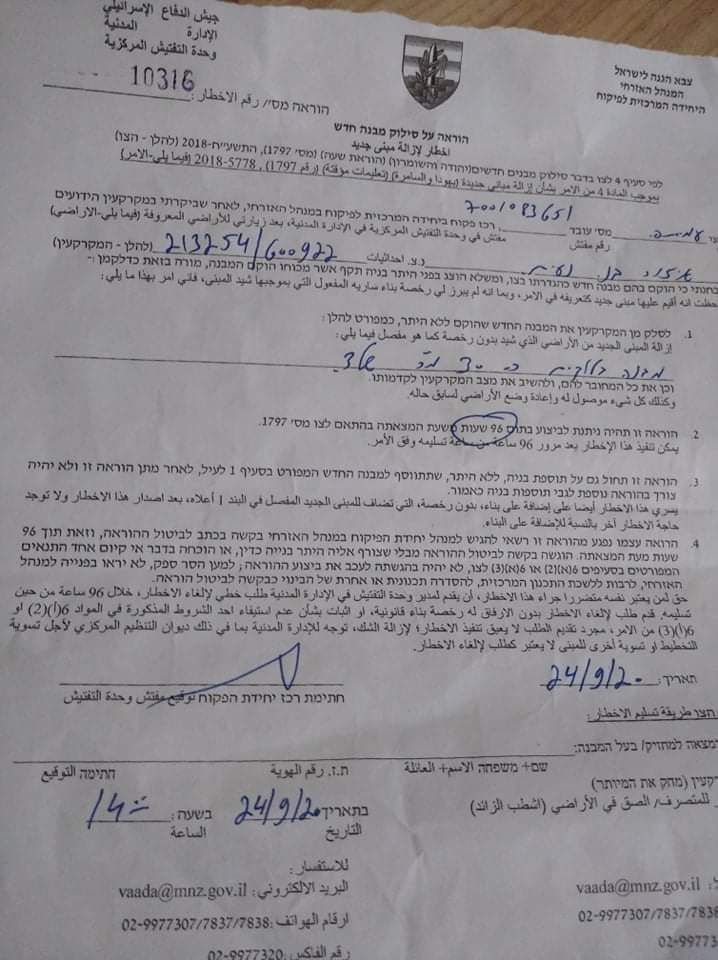 جيش الدفاع الإسرائيلي
الإدارة المدنية
وحدة التفتيش المركزية
צבא הגנה לישראל
המנהל האזרחי
היחידה המרכזית לפיקוח
10316
הוראה מסי/ رقم الاخطار:
הוראה על סילוק מבנה חדש
اخطار لإزالة مبنى جديد
לפי סעיף 4 לצו בדבר סילוק מבנים חדשים (יהודה והשומרון) (הוראת שעה) (מסי 1797), התשע״ח-2018 (להלן - הצו)
بموجب المادة 4 من الامر بشأن إزالة مباني جديدة (يهودا والسامرة) (تعليمات مؤقتة) (رقم 1797), 5778-2018 (فيما يلي-الامر)
מסי עובד 7001083651, רכז פקוח ביחידה המרכזית לפיקוח במנהל האזרחי, לאחר שביקרתי במקרקעין הידועים
رقم مفتش مفتش في وحدة التفتيش المركزية في الإدارة المدنية، بعد زيارتي للأراضي المعروفة (فيما يلي-الاراضي)
נ.צ. احداثيات 213254/600922 (להלן - המקרקעין)
כי הוקם בהם מבנה חדש כהגדרתו בצו, ומשלא הוצג בפני היתר בניה תקף אשר מכוחו הוקם המבנה, מורה בזאת כדלקמן:-
انه أقيم عليها مبنى جديد كتعريفه في الامر، وبما انه لم يبرز لي رخصة بناء سارية المفعول التي بموجبها شيد المبنى، فأني امر بهذا ما يلي:
1. לסלק מן המקרקעין את המבנה החדש שהוקם ללא היתר, כמפורט להלן:
إزالة المبنى الجديد من الأراضي الذي شيد بدون رخصة كما هو مفصل فيما يلي:
מבנה בלוקים כ- 30 מ״ר
וכן את כל המחובר להם, ולהשיב את מצב המקרקעין לקדמותו.
وكذلك كل شيء موصول له وإعادة وضع الأراضي لسابق حاله.
2. הוראה זו תהיה ניתנת לביצוע בתום 96 שעות משעת המצאתה בהתאם לצו מסי 1797.
يمكن تنفيذ هذا الإخطار بعد مرور 96 ساعة من ساعة تسليمه وفق الأمر.
3. הוראה זו תחול גם על תוספת בניה, ללא היתר, שתתווסף למבנה החדש המפורט בסעיף 1 לעיל, לאחר מתן הוראה זו ולא יהיה
צורך בהוראה נוספת לגבי תוספות בניה כאמור.
يسري هذا الاخطار أيضا على إضافة على بناء، بدون رخصة، التي تضاف للمبنى الجديد المفصل في البند 1 أعلاه، بعد اصدار هذا الاخطار ولا توجد
حاجة الاخطار آخر بالنسبة للإضافة على البناء.
4. הרואה עצמו נפגע מהוראה זו רשאי להגיש למנהל יחידת הפיקוח במנהל האזרחי בקשה בכתב לביטול ההוראה, וזאת תוך 96
שעות מעת המצאתה. הוגשה בקשה לביטול ההוראה מבלי שצורף אליה היתר בנייה כדין, או הוכחה בדבר אי קיום אחד התנאים
המפורטים בסעיפים 6(א)(2) או 6(א)(3) לצו, לא יהיה בהגשתה לעכב את ביצוע ההוראה; למען הסר ספק, לא יראו בפנייה למנהל
האזרחי, לרבות ללשכת התכנון המרכזית, להסדרה תכנונית או אחרת של הבינוי כבקשה לביטול הוראה.
حق لمن يعتبر نفسه متضررا جراء هذا الاخطار، أن يقدم لمدير وحدة التفتيش في الإدارة المدنية طلب خطي لإلغاء الاخطار، خلال 96 ساعة من حين
تسليمه. قدم طلب لإلغاء الاخطار بدون الارفاق له رخصة بناء قانونية، او اثبات بشأن عدم استيفاء احد الشروط المذكورة في المواد 6(ا)(2) او
6(ا)(3) من الامر، مجرد تقديم الطلب لا يعيق تنفيذ الاخطار؛ لإزالة الشك، توجه للإدارة المدنية بما في ذلك ديوان التنظيم المركزي لأجل تسوية
التخطيط او تسوية أخرى للمبنى لا يعتبر كطلب لإلغاء الاخطار.
תאריך: 24/9/20
חתימת רכז יחידת הפקוח توقيع مفتش وحدة التفتيش
طريقة تسليم الاخطار:
למחזיק/ בעל המבנה:
שם+ משפחה الاسم+ العائلة ת.ז. رقم الهوية חתימה التوقيع
(מחק את המיותר)
للمتصرف/ الصق في الأراضي (اشطب الزائد)
בתאריך 24/9/20 בשעה: 14:
التاريخ الساعة
للاستفسار:
البريد الالكتروني: vaada@mnz.gov.il
ارقام الهواتف: 02-9977307/7837/7838
رقم الفاكس: 02-9977320
vaada@mnz.gov.il
02-9977307/7837/7838